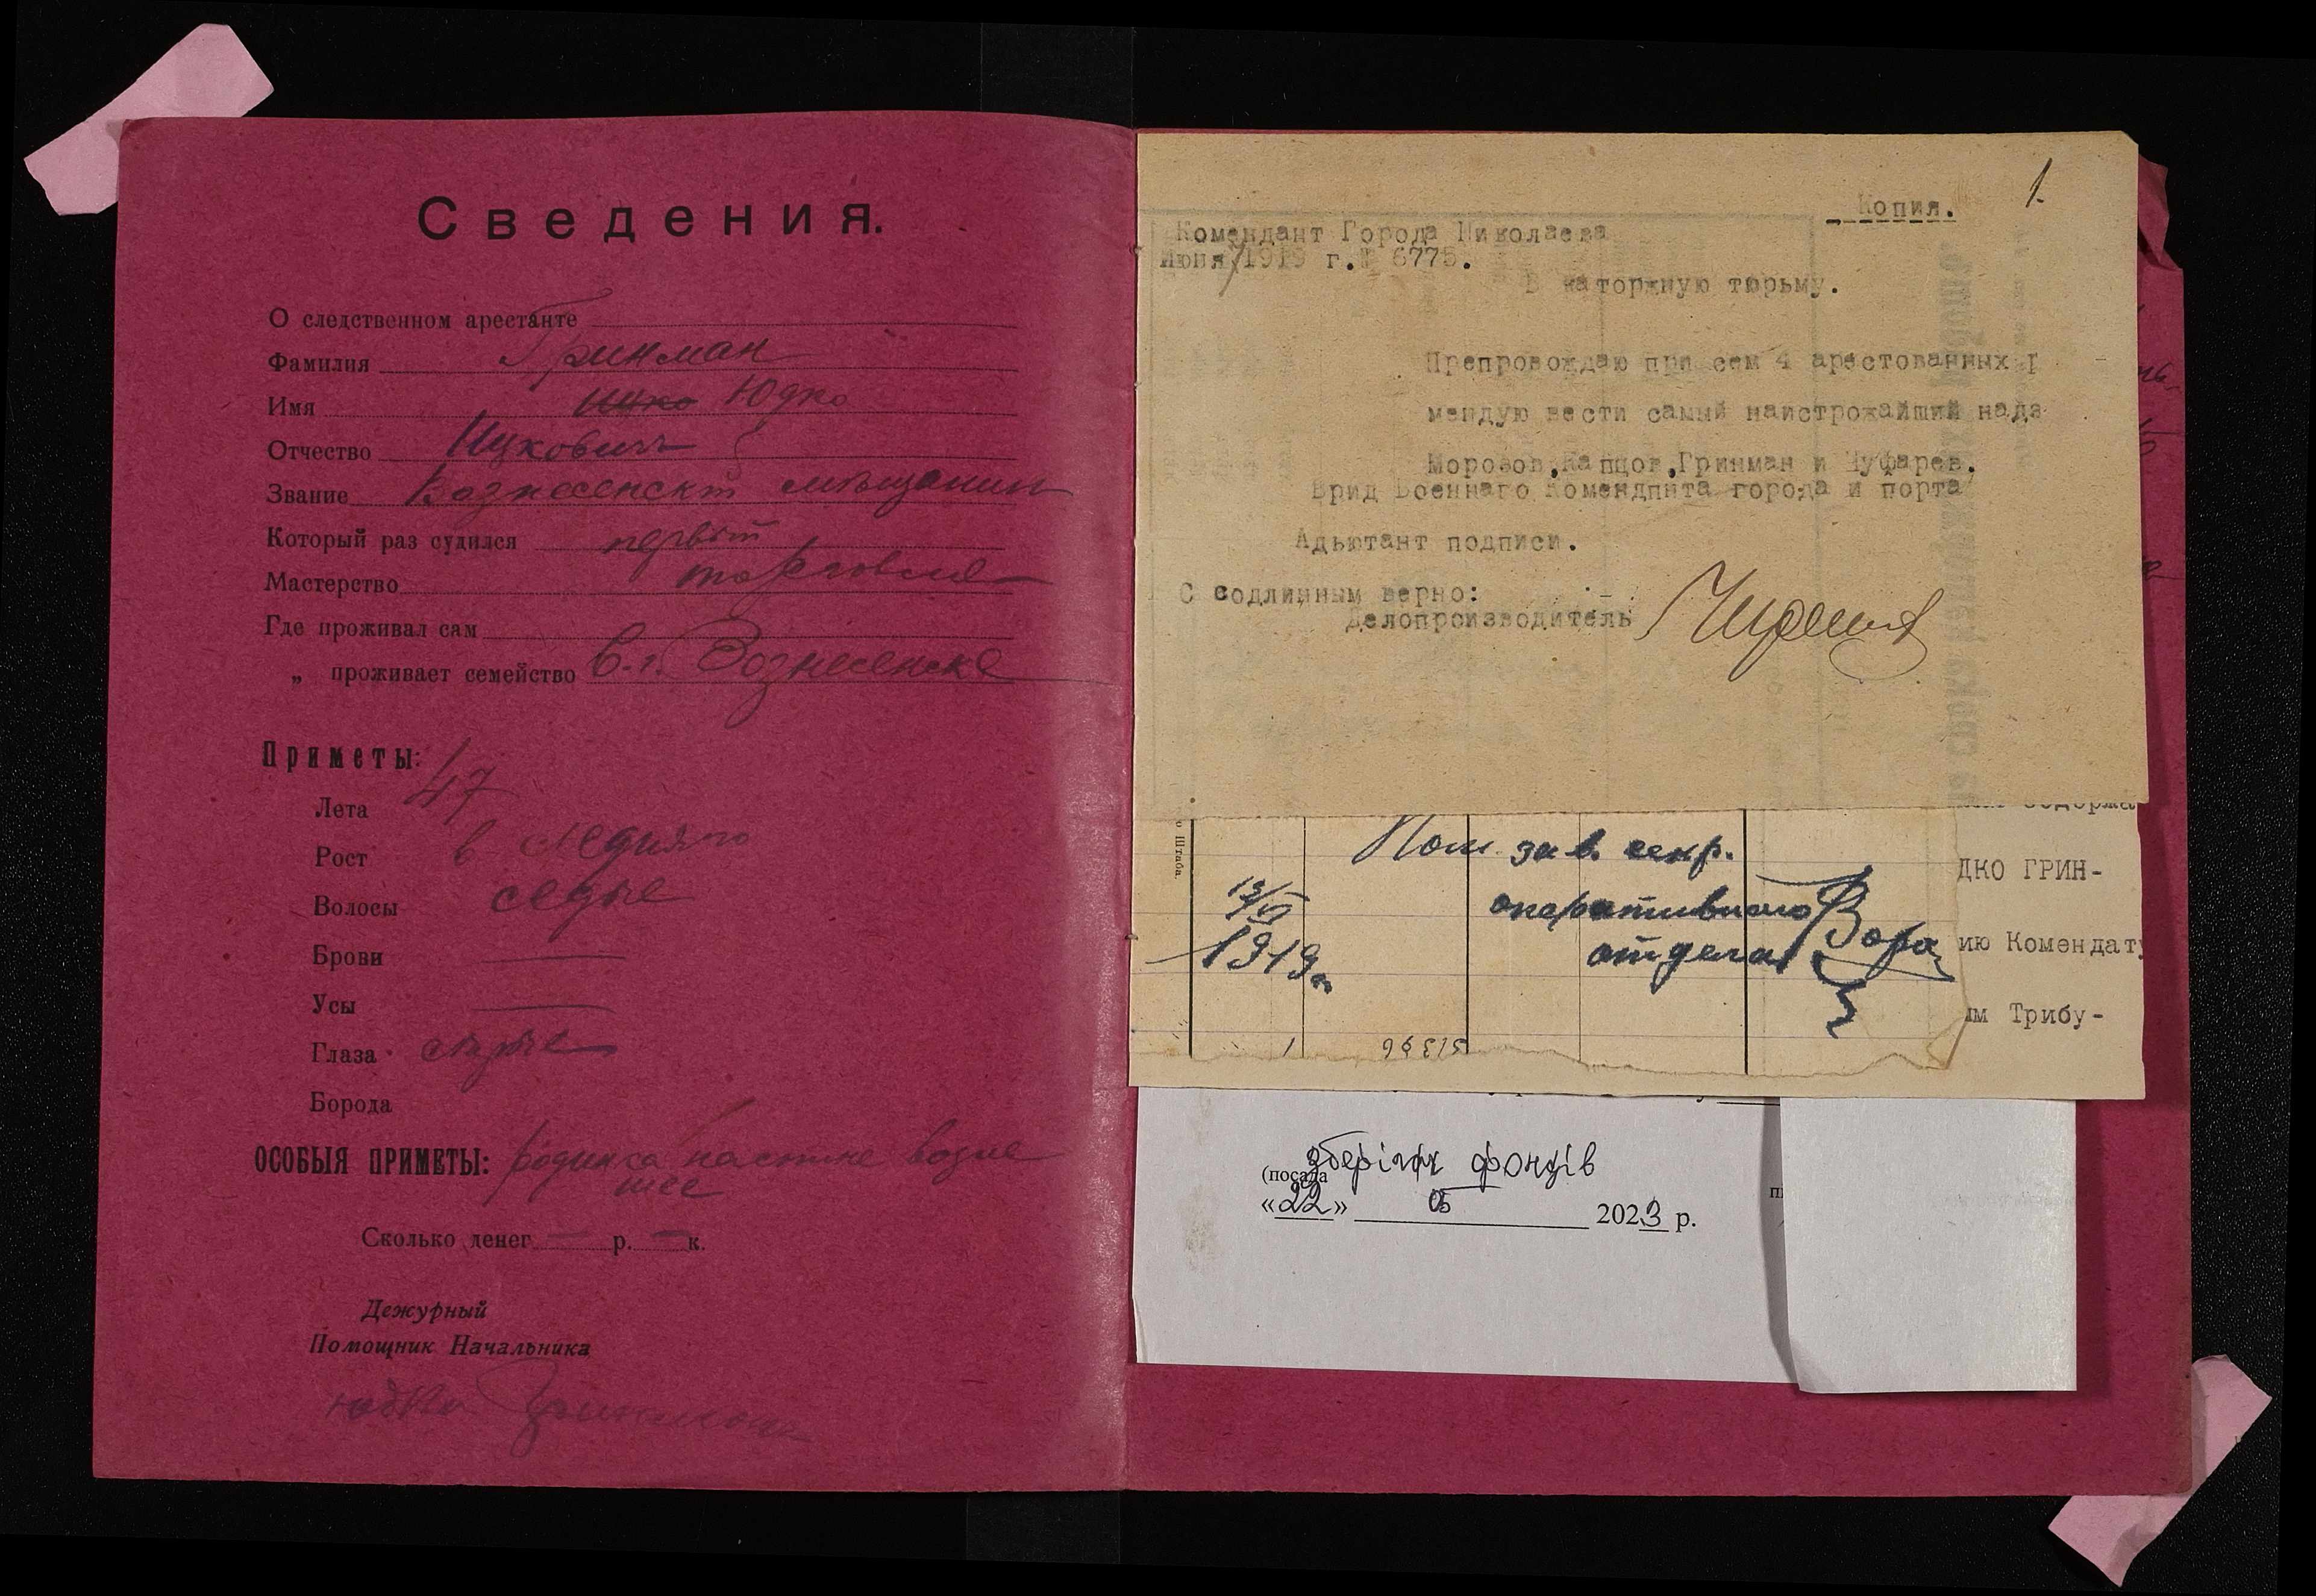 Сведения.
О следственном арестанте
Фамилия Гринман
Имя Ицко Юдко
Отчество Ицкович
Звание Вознесенскій мѣщанин
Который раз судился первый
Мастерство торговля
Где проживал сам
„ проживает семейство в г. Вознесенске
Приметы:
Лета 47
Рост в.
Волосы седые
Брови —
Усы —
Глаза серые
Борода
ОСОБЫЯ ПРИМЕТЫ: родинка на спине возле
шее
Сколько денег — р. — к.
Дежурный
Помощник Начальника
Юдко Гринман
1.
Копия.
Комендант Города Николаева
Июня 7 1919 г.№ 6775.
В каторжную тюрьму.
Препровождаю при сем 4 арестованных р
мендую вести самый наистрожайший надз
Морозов,Капцов,Гринман и Чуфарев.
Врид Военнаго Комендпнта города и порта
Адьютант подписи.
С содлинным верно:
Делопроизводитель
о Штаба.
Пом зав. секр.
13/VI
оперативного
1919 г.
отдела
51396
ДКО ГРИН-
ию Комендату
им Трибу-
зберігач фондів
(посада
«22» 05 2023 р.